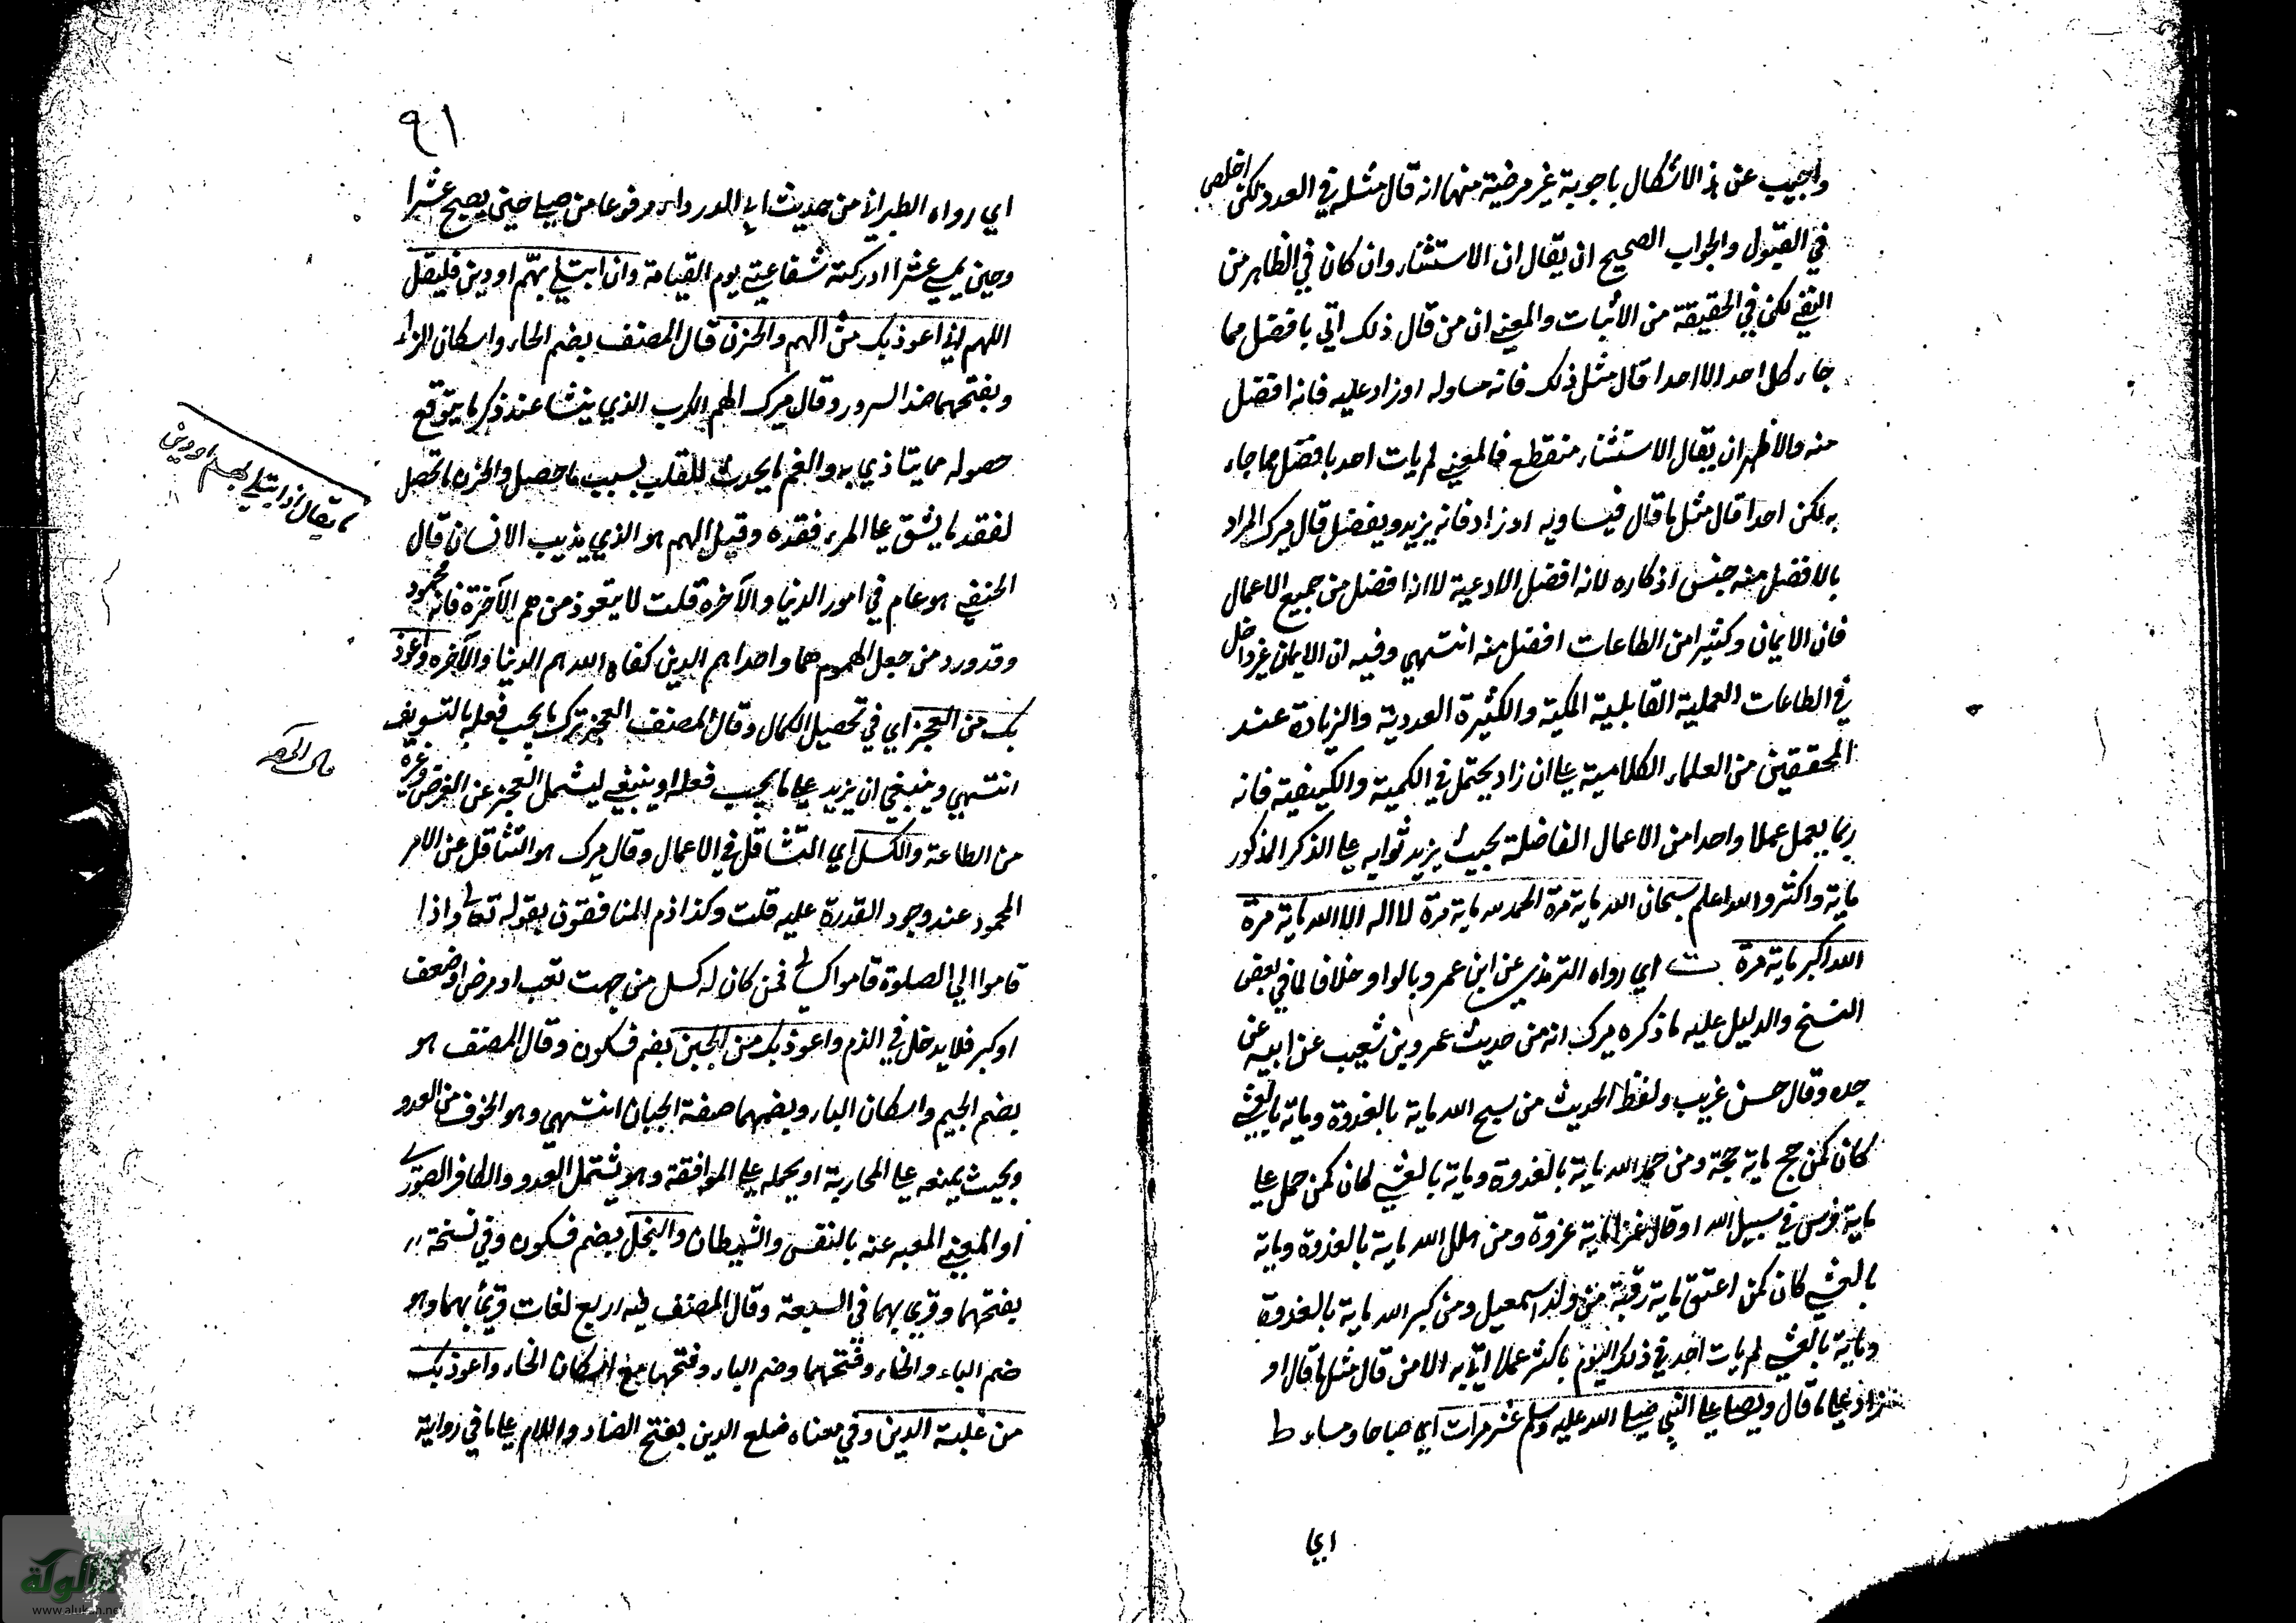 واجيب عن هذا الاشكال باجوبة غير مرضية منها انه قال مثله في العدد لكن اخلص
في القبول والجواب الصحيح ان يقال ان الاستثناء وان كان في الظاهر من
النفي لكن في الحقيقة من الاثبات والمعنى ان من قال ذلك اتى بافضل مما
جاء كل احد الا احدا قال مثل ذلك فانه مساو له او زاد عليه فانه افضل
منه والاظهر ان يقال الاستثناء منقطع فالمعنى لم يات احد بافضل مما جاء
به لكن احدا قال مثل ما قال فيساويه او زاد فانه يزيد ويفضل قال ميرك المراد
بالافضل منه جنس اذكاره لانه افضل الادعية لا انه افضل من جميع الاعمال
فان الايمان وكثيرا من الطاعات افضل منه انتهى وفيه ان الايمان غير داخل
في الطاعات العملية القابلية الكمية والكثيرة العددية والزيادة عند
المحققين من العلماء الكلامية على ان زاد يحتمل في الكمية والكيفية فانه
ربما يعمل عملا واحدا من الاعمال الفاضلة بحيث يزيد ثوابه على الذكر المذكور
ماية واكثر والله اعلم سبحان الله ماية مرة الحمد لله ماية مرة لا اله الا الله ماية مرة
الله اكبر ماية مرة ت اي رواه الترمذي عن ابن عمرو بالواو خلافا لما في بعض
النسخ والدليل عليه ما ذكره ميرك انه من حديث عمرو بن شعيب عن ابيه عن
جده وقال حسن غريب ولفظ الحديث من سبح الله ماية بالغدوة وماية بالعشي
كان كمن حج ماية حجة ومن حمد الله ماية بالغدوة وماية بالعشي كان كمن حمل على
ماية فرس في سبيل الله او قال غزا ماية غزوة ومن هلل الله ماية بالغدوة وماية
بالعشي كان كمن اعتق ماية رقبة من ولد اسمعيل ومن كبر الله ماية بالغدوة
وماية بالعشي لم يات احد في ذلك اليوم باكثر عملا اتى به الا من قال مثل ما قال او
زاد على ما قال ويصلي على النبي صلى الله عليه وسلم عشر مرات اي صباحا ومساء ط
اي
٩١
اي رواه الطبراني من حديث ابي الدرداء مرفوعا من صلى حين يصبح عشرا
وحين يمسي عشرا ادركته شفاعتي يوم القيامة وان ابتلي بهم او دين فليقل
اللهم اني اعوذ بك من الهم والحزن قال المصنف بضم الحاء واسكان الزاء
وبفتحهما ضد السرور وقال ميرك الهم الكرب الذي ينشا عند ذكر ما يتوقع
حصوله مما يتاذى به والغم ما يحدث للقلب بسبب ما حصل والحزن ما تحصل
لفقد ما يشق على المرء فقده وقيل الهم هو الذي يذيب الانسان قال
الحنفي هو عام في امور الدنيا والآخرة قلت لا يتعوذ من هم الآخرة فانه محمود
وقد ورد من جعل الهموم هما واحدا هم الدين كفاه الله هم الدنيا والآخرة واعوذ
بك من العجز اي في تحصيل الكمال وقال المصنف العجز ترك ما يجب فعله بالتسويف
انتهى وينبغي ان يزيد على ما يجب فعله او ينبغي ليشمل العجز عن الفرض وغيره
من الطاعة والكسل اي التثاقل في الاعمال وقال ميرك هو التثاقل عن الامر
المحمود عند وجود القدرة عليه قلت وكذا ذم المنافقون بقوله تعالى واذا
قاموا الي الصلوة قاموا كسالى فمن كان له كسل من جهت تعب او مرض او ضعف
او كبر فلا يدخل في الذم واعوذ بك من الجبن بضم فسكون وقال المصنف هو
بضم الجيم واسكان الباء وبضمهما صفة الجبان انتهى وهو الخوف من العدو
وبحيث يمنعه على المحاربة او يحمله على الموافقة وهو يشتمل العدو والكافر الصوري
او المعنى المعبر عنه بالنفس والشيطان والبخل بضم فسكون وفي نسخة
بفتحهما وقرئ بهما في السبعة وقال المصنف فيه اربع لغات قرئ بهما وهو
ضم الباء والخاء وفتحهما وضم الباء وفتحها مع اسكان الخاء واعوذ بك
من غلبة الدين وفي معناه ضلع الدين بفتح الضاد واللام على ما في رواية
ما يقال اذا ابتلي بهم او دين
www.alukah.net
الألوكة